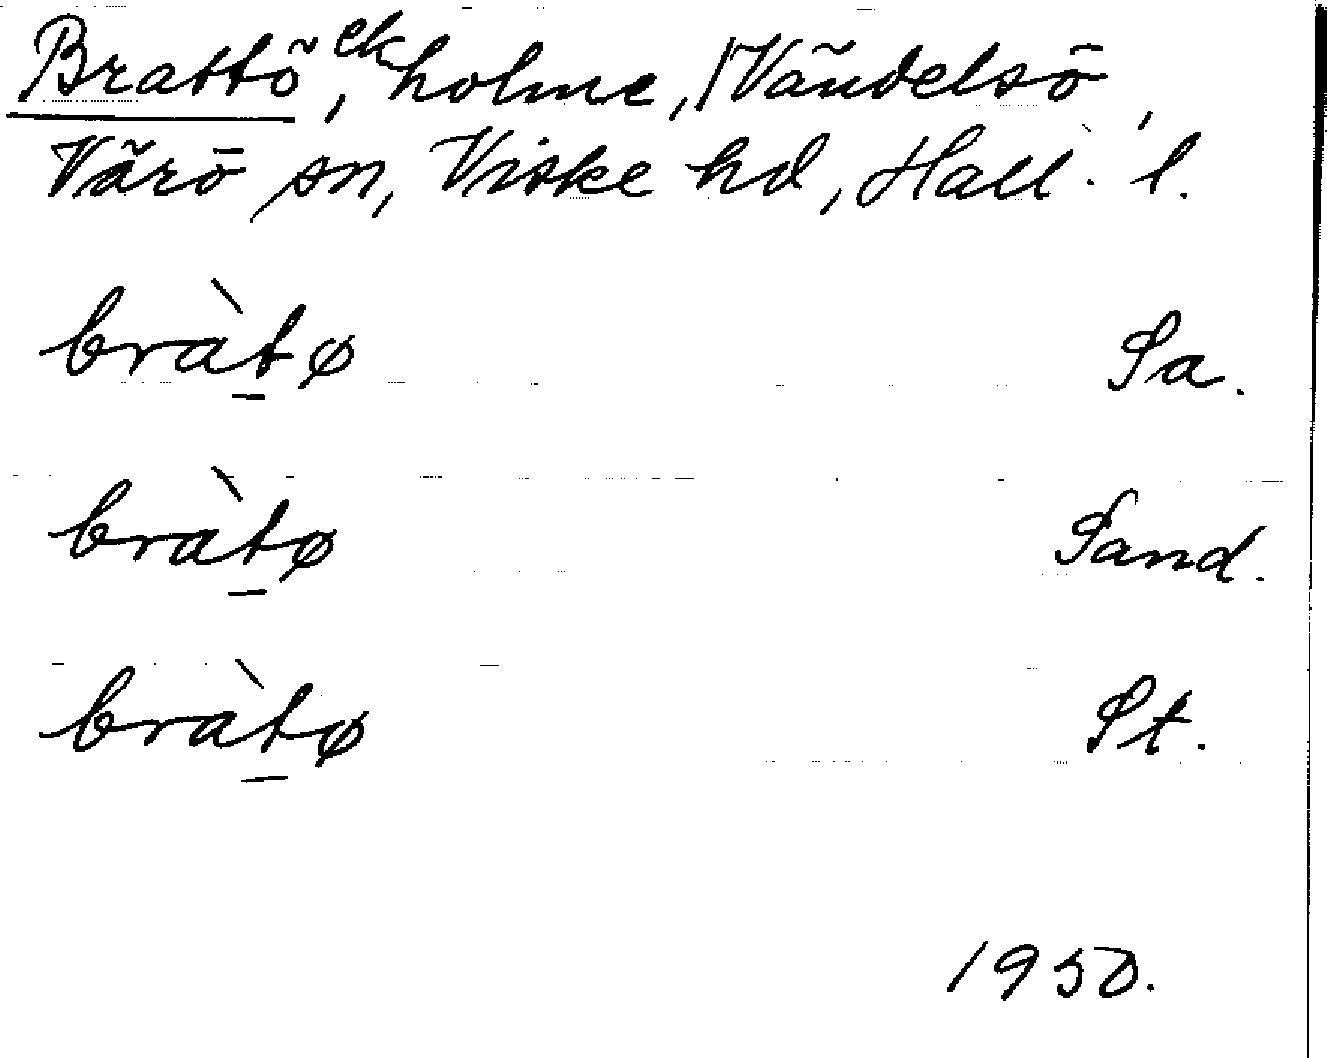 Brattö, ekholme, /Vändelsö,
Värö sn, Viske hd, Hall. l.
bràt̲ø Sa.
bràt̲ø Sand.
bràt̲ø St.
1950.